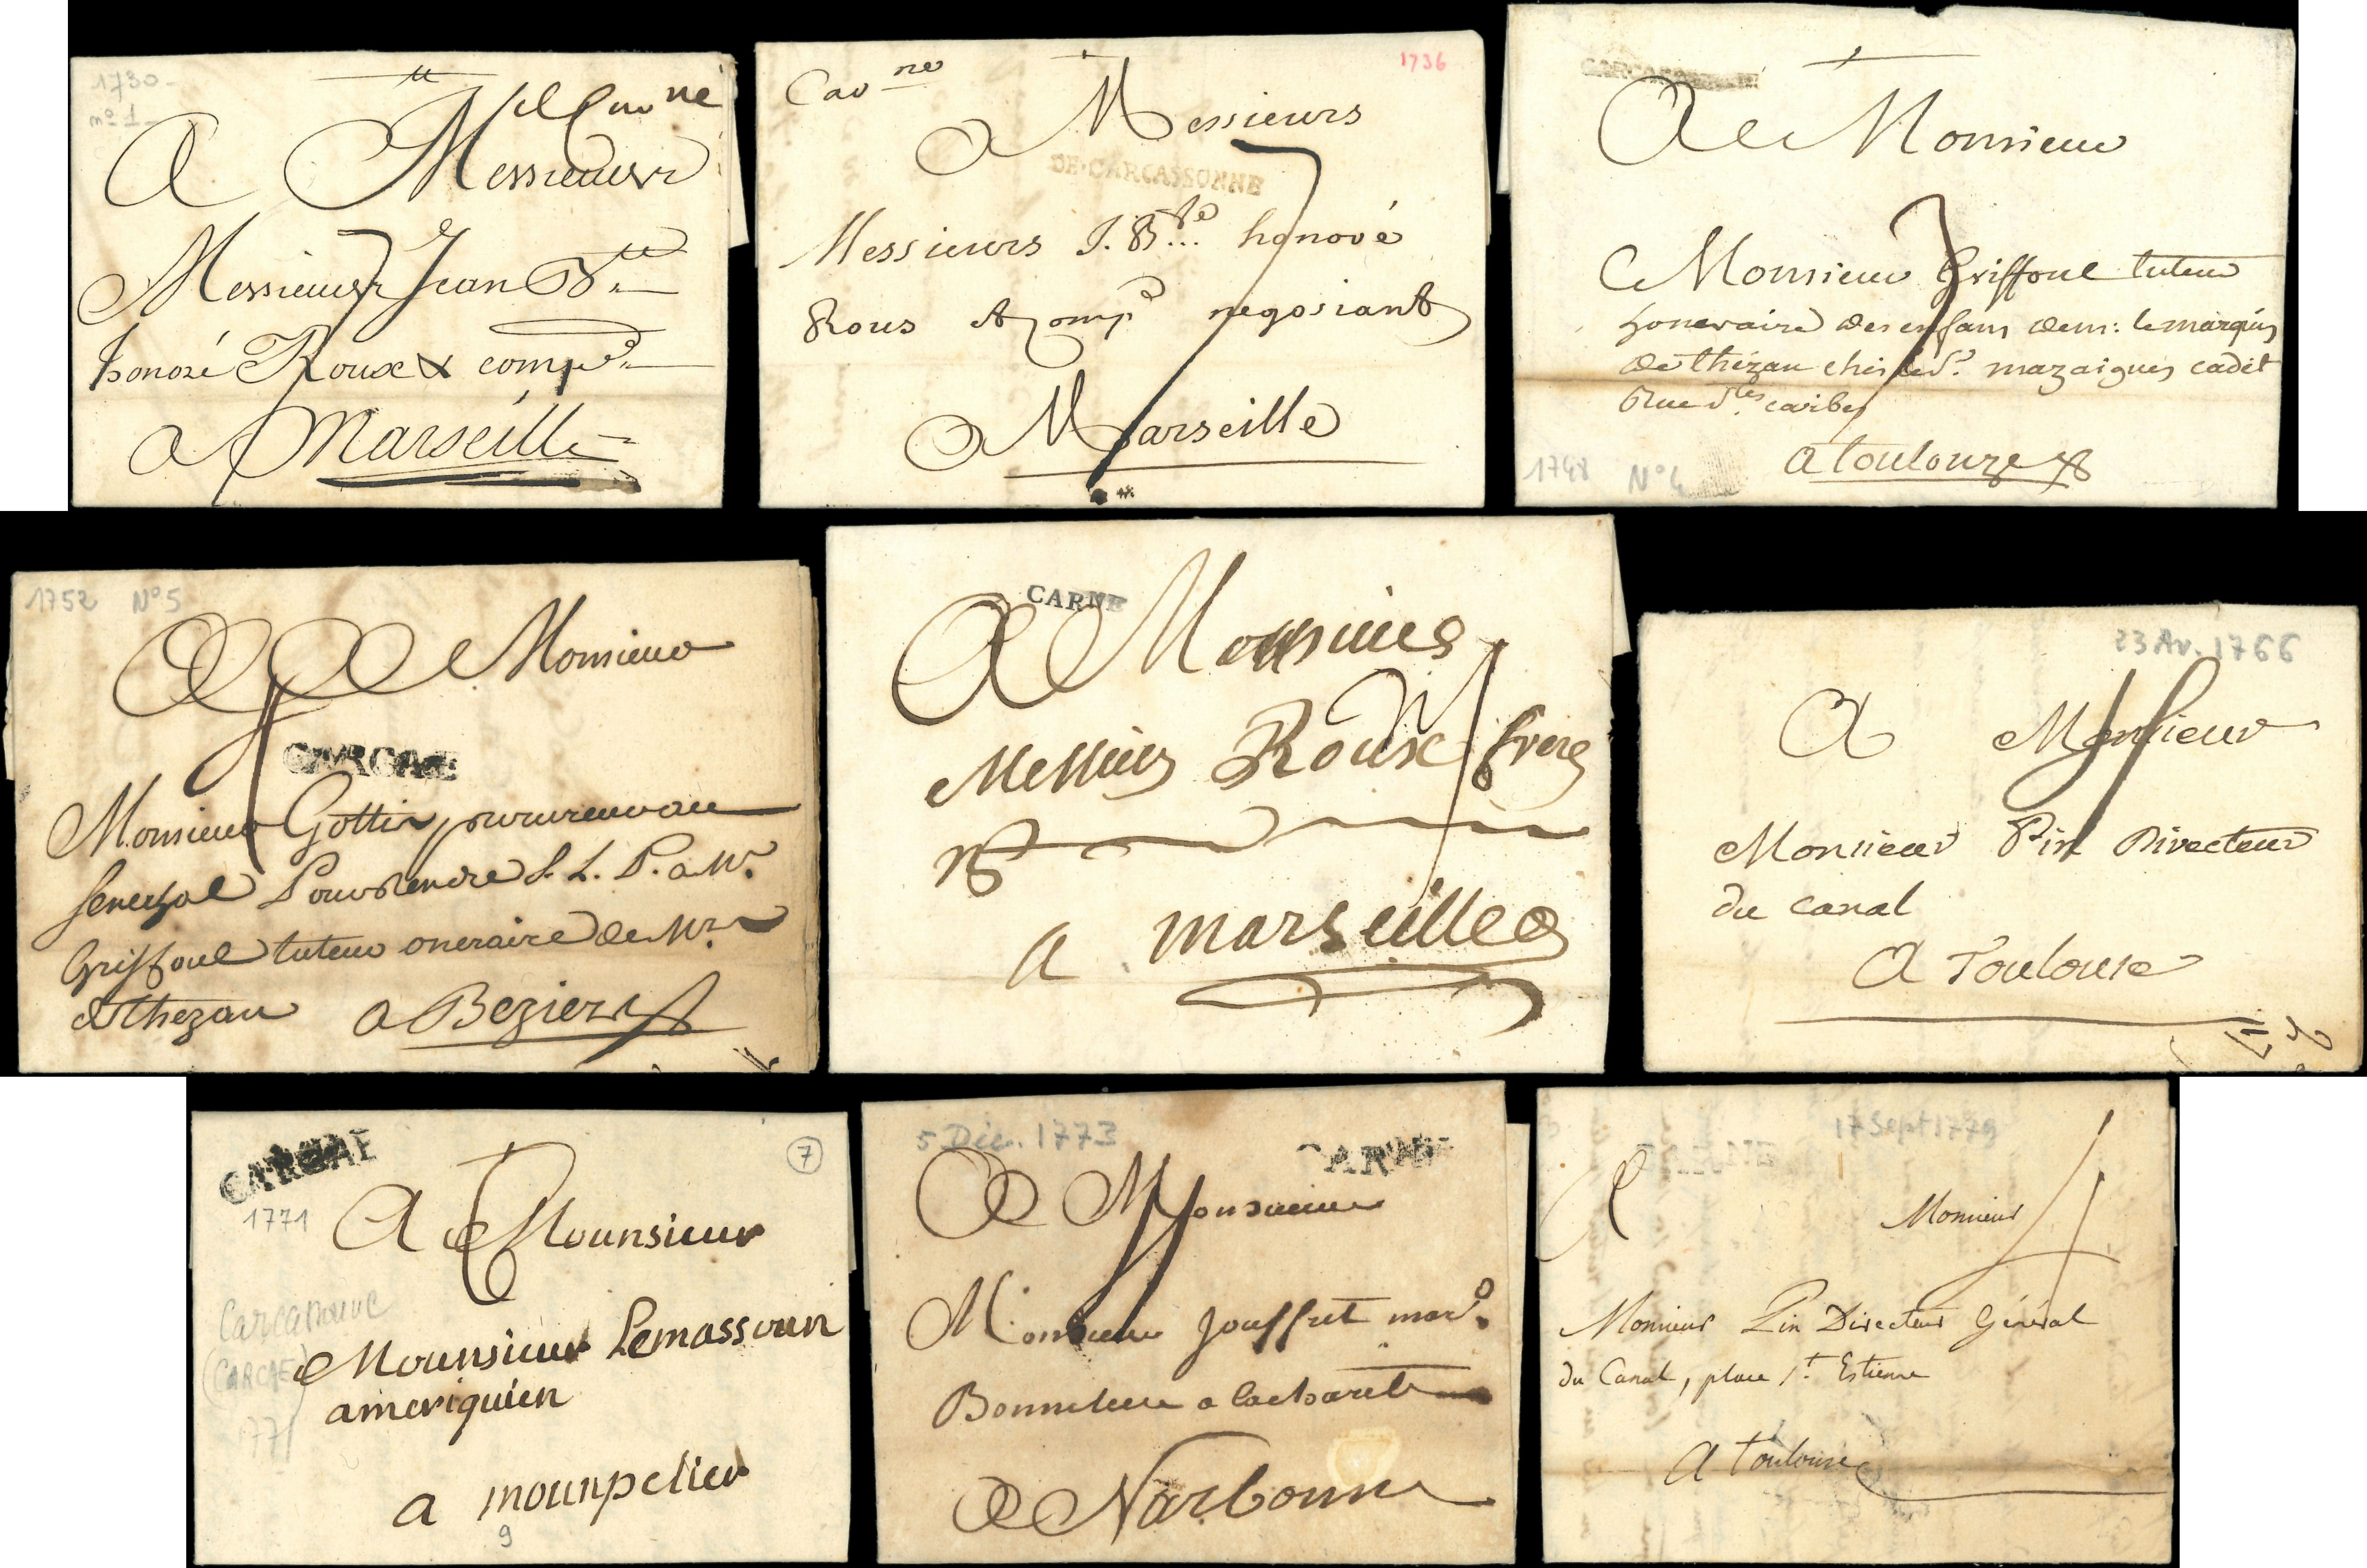 1730
nº 1
A Messieurs
Messieurs Jean Bte
honoré Roux & compe
a Marseille
Carne
1736
A Messieurs
DE·CARCASSONNE
Messieurs J. Bte honoré
Roux & Comp negosiant
A Marseille
A Monsieur
Monsieur Griffoul tuteur
honoraire des enfans de mr: le marquis
de thézan chés le Sr. mazaigues cadet
Rue
a toulouze
1748 Nº 4
1752 Nº 5
A Monsieur
CARCAE
Monsieur Gottis procureur au
Senechal Pour Rendre S. L. P. a Mr.
Griffoul tuteur oneraire de Mr.
de thezan a Beziers
CARNE
A Messieurs
Messieurs Roux freres
a marseille
23 Av. 1766
A Monsieur
Monsieur Pin Directeur
du canal
A Toulouse
CARCAE
7
1771
A Mounsieur
Carcassonne
Mounsieur Lemassoun
(CARCAE)
ameriquien
1771
a mounpelier
9
5 Déc. 1773
CARNE
A Monsieur
Monsieur Jouffret mard.
Bonnetier a la charité
A Narbonne
17 Sept 1779
A Monsieur
Monsieur Pin Directeur Général
du Canal, place St. Estienne
A toulouse